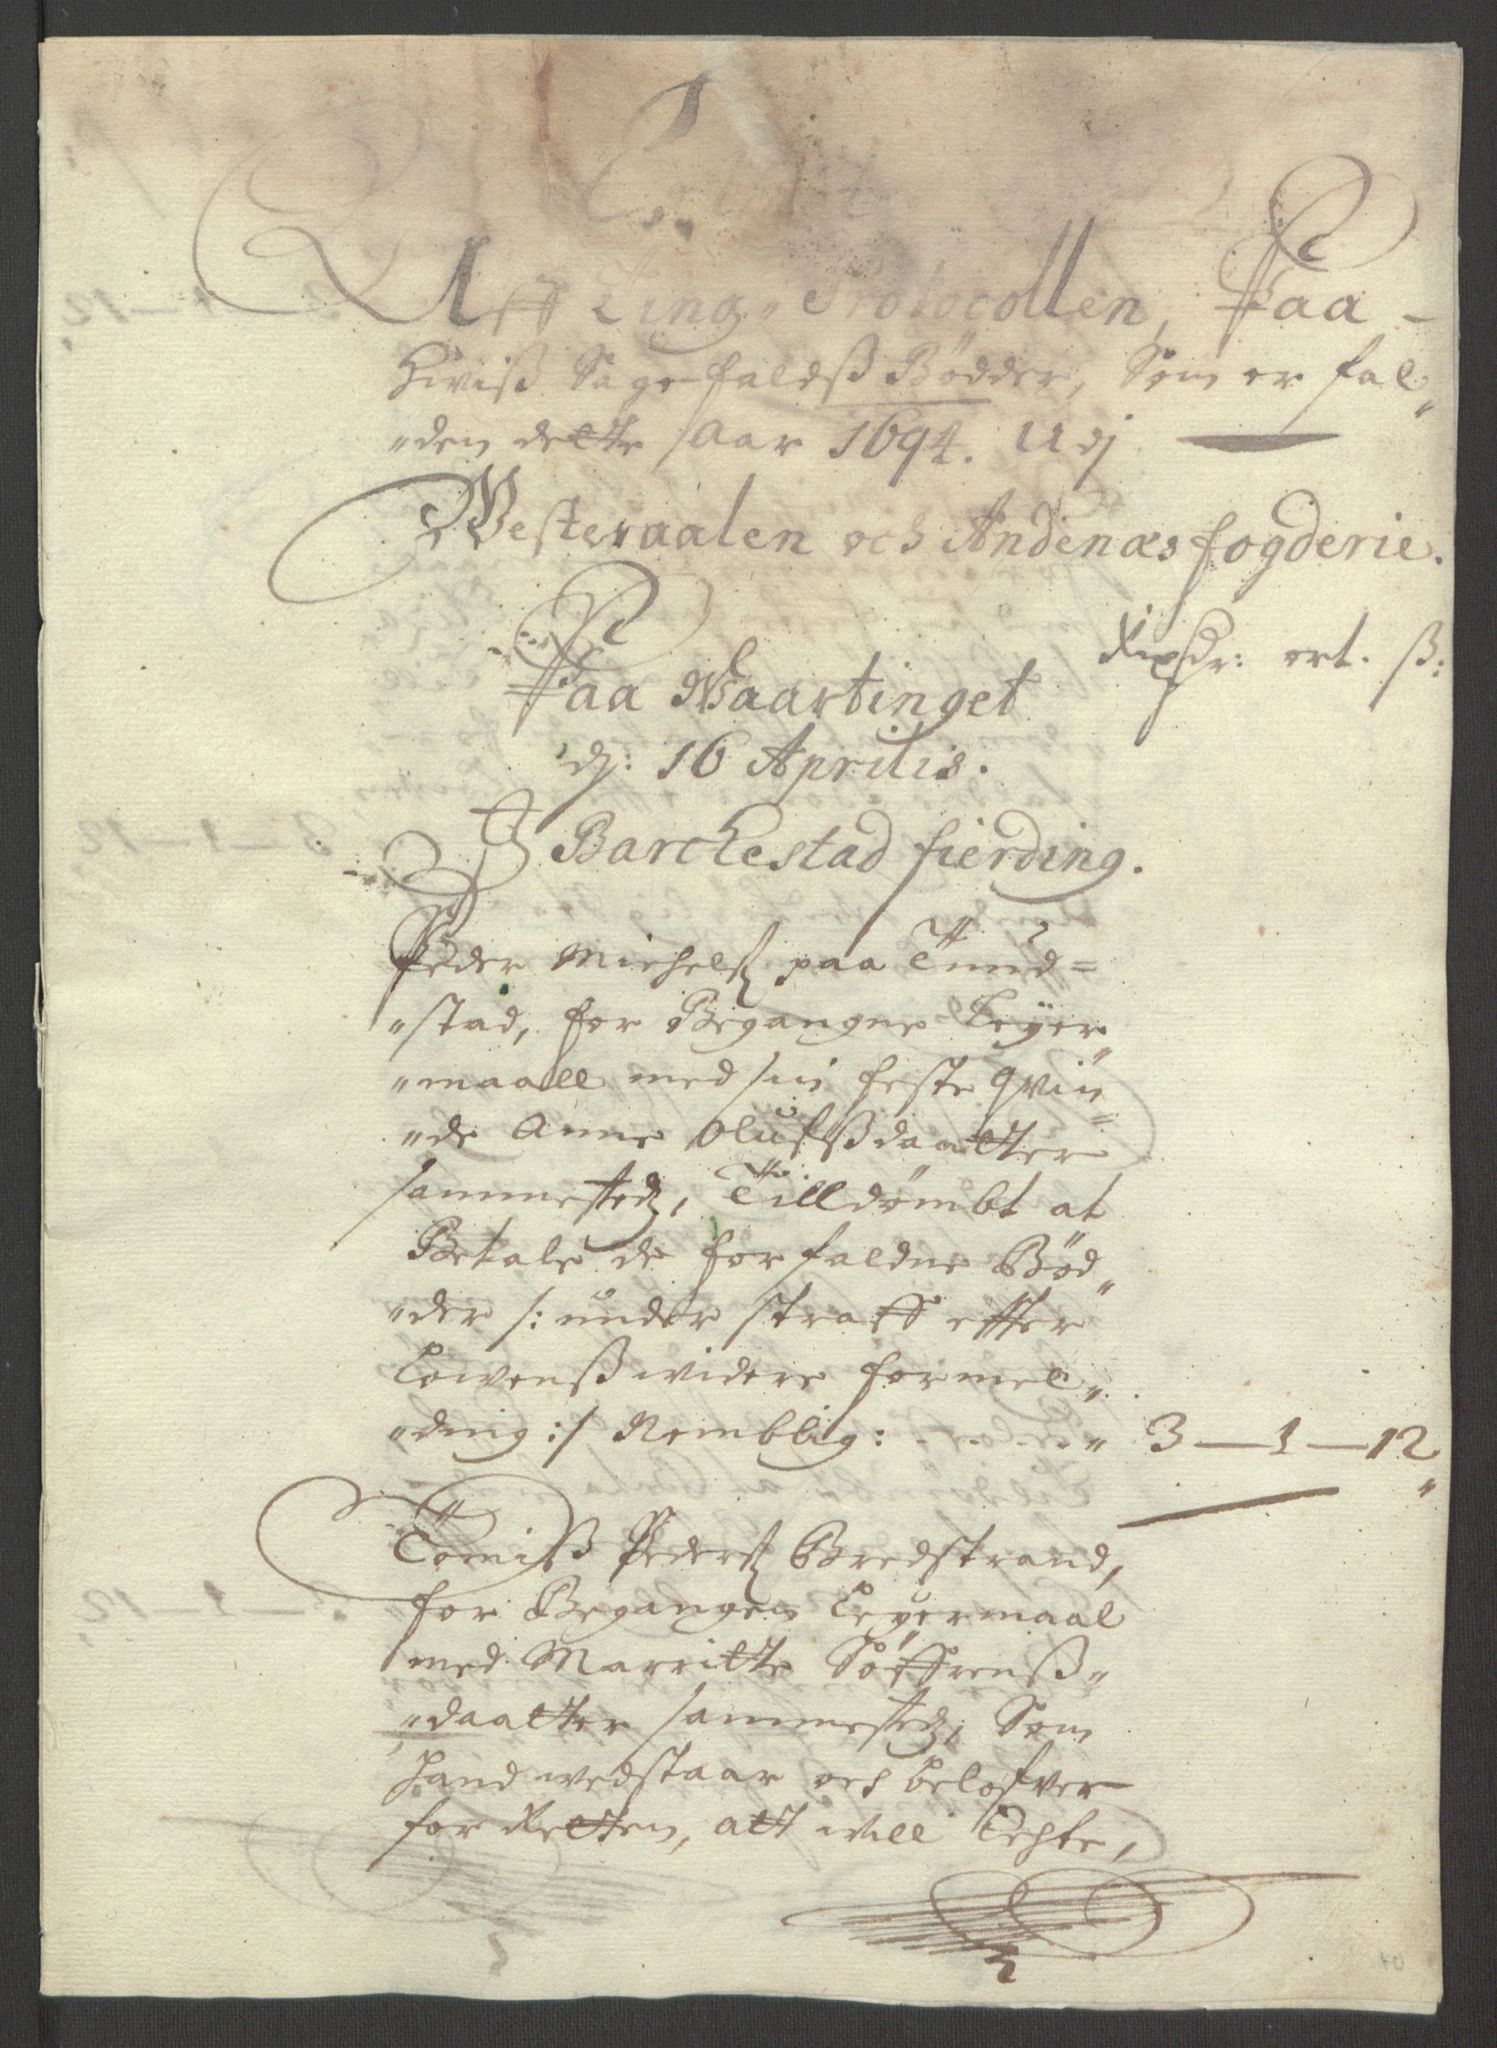 Extract
Aff Ting Protocollen, Paa
Hviss Sagefaldss Bødder, Som er fal„
„den dette Aar 1694. Udj
Westeraalen och Andenæs fogderie.
Rixdr: ort. ß:
Paa Waartinget
dj: 16 Aprilis.
J Barckestad fierding.
Peder Michelß paa Tund=
„stad, for Begangne Leyer„
„maall med sin feste Qvin=
„de Anne Olufsdaatter
sammestedz, Tilldømbt at
Betale de forfaldne Bød„
„der /: under straff effter
Lowenß widere formel„
„ding :/ Nemblig: . . . . . „ 3 — 1 — 12
Tømiß Pederß Bredstrand,
for Begangen Leyermaal
med Marritte Søffrenß„
„daatter sammestedz, Som
hand wedstaar och belofver
for Retten, att will Echte,